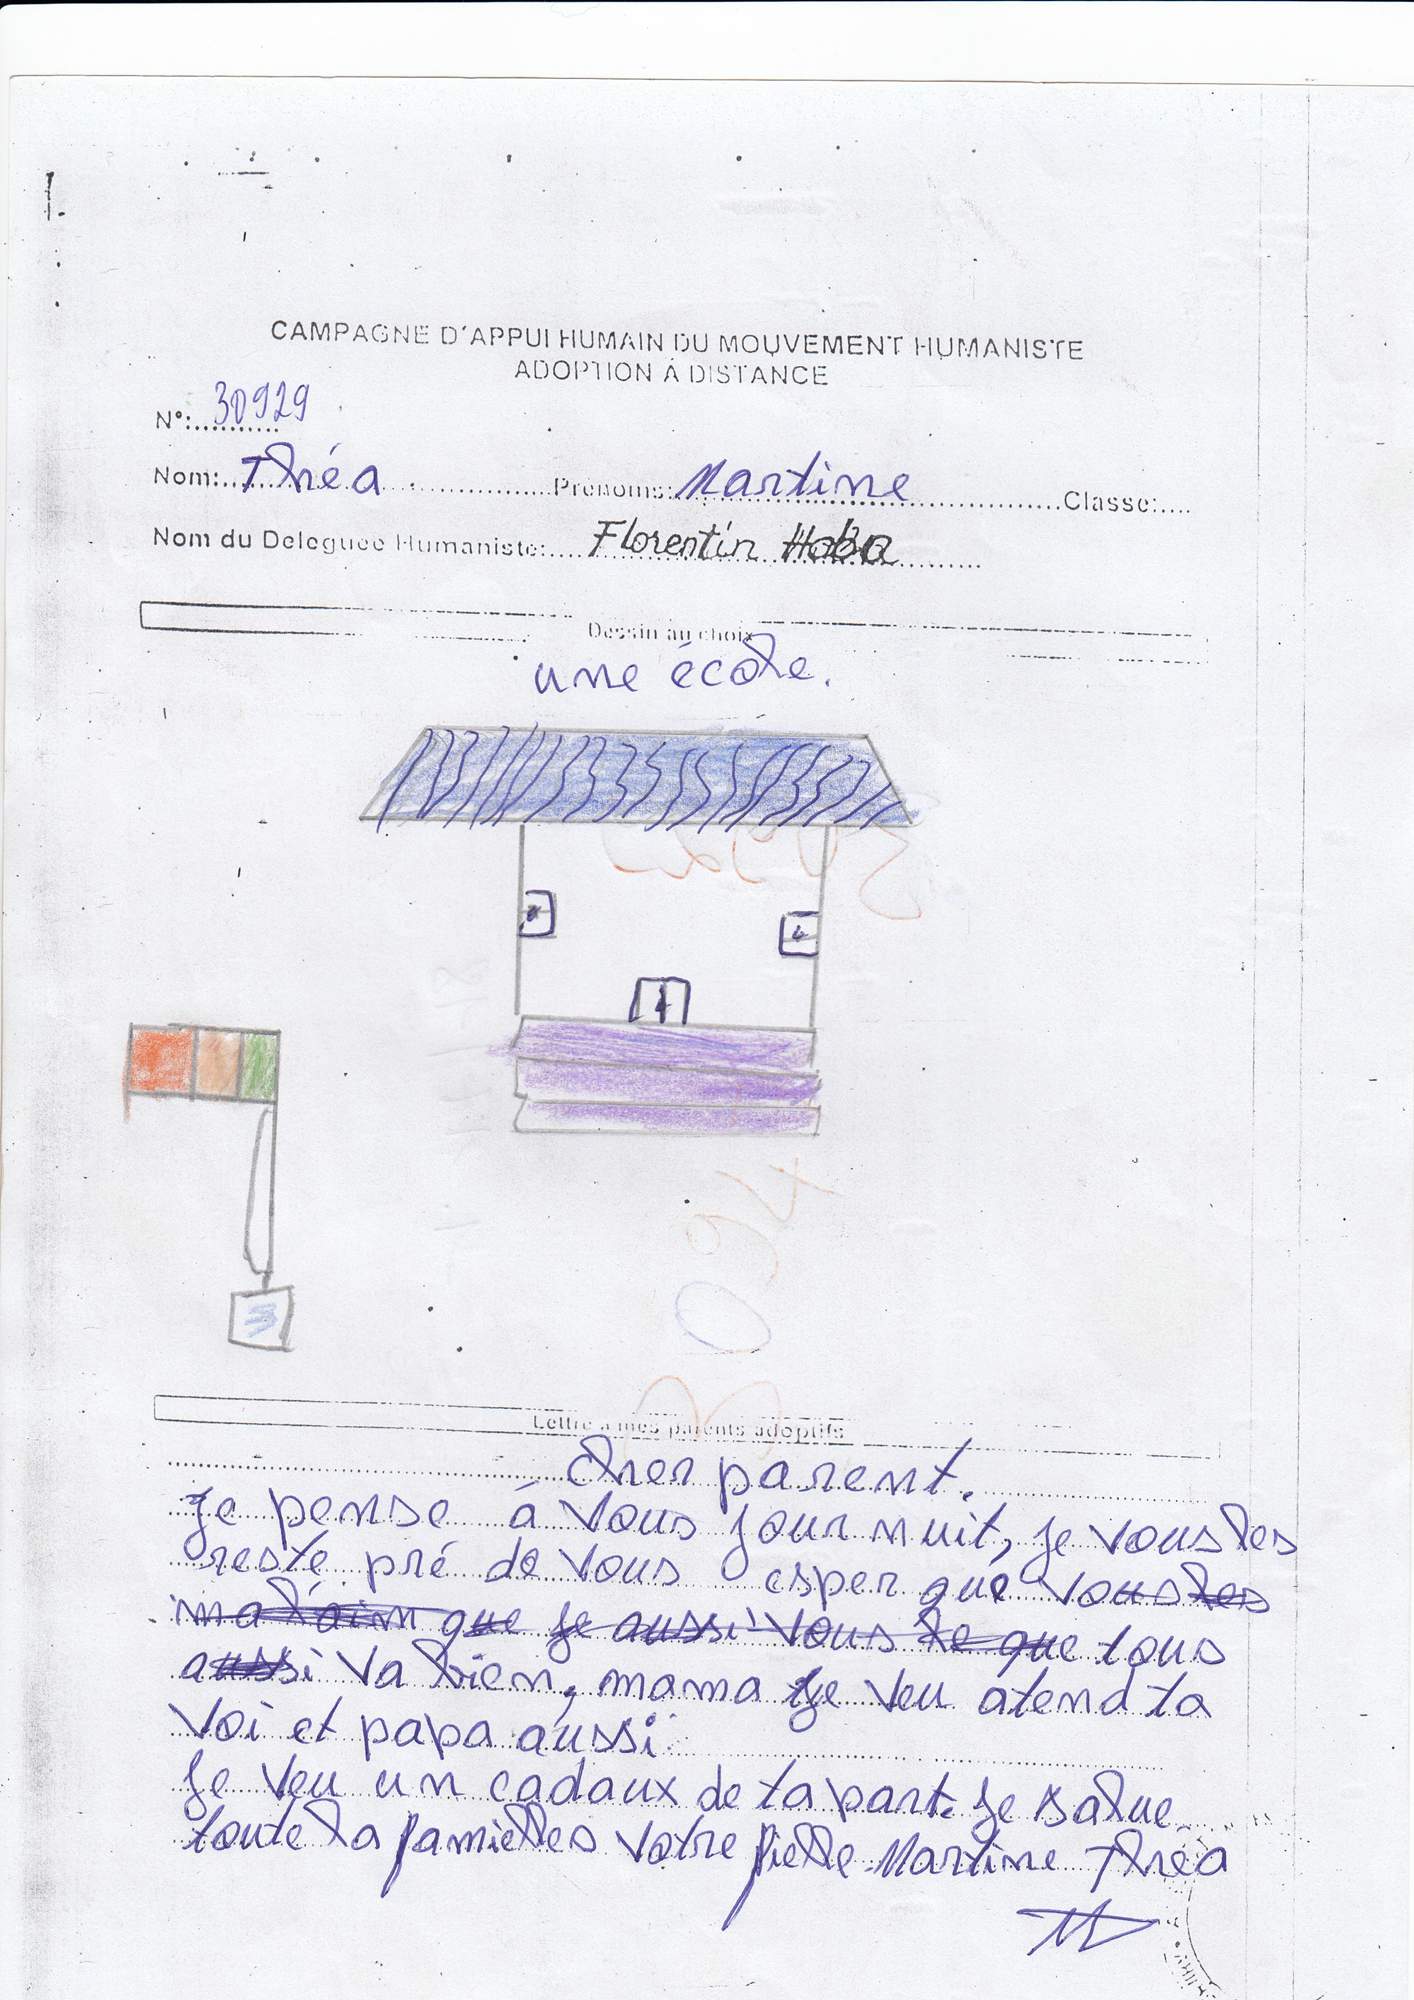 CAMPAGNE D'APPUI HUMAIN DU MOUVEMENT HUMANISTE
ADOPTION À DISTANCE
N°: 30929
Nom: Théa Prénoms: Martine Classe:
Nom du Deleguée Humaniste: Florentin Haba
Dessin au choix
une école.
Lettre a mes parents adoptifs
cher parent.
Je pense à vous jour nuit, je vous les
resté pré de vous esper que vous
que tous
aussi va bien, mama je veu atend ta
voi et papa aussi
Je veu un cadaux de ta part. Je salue
toute la familles votre fielle Martine Théa